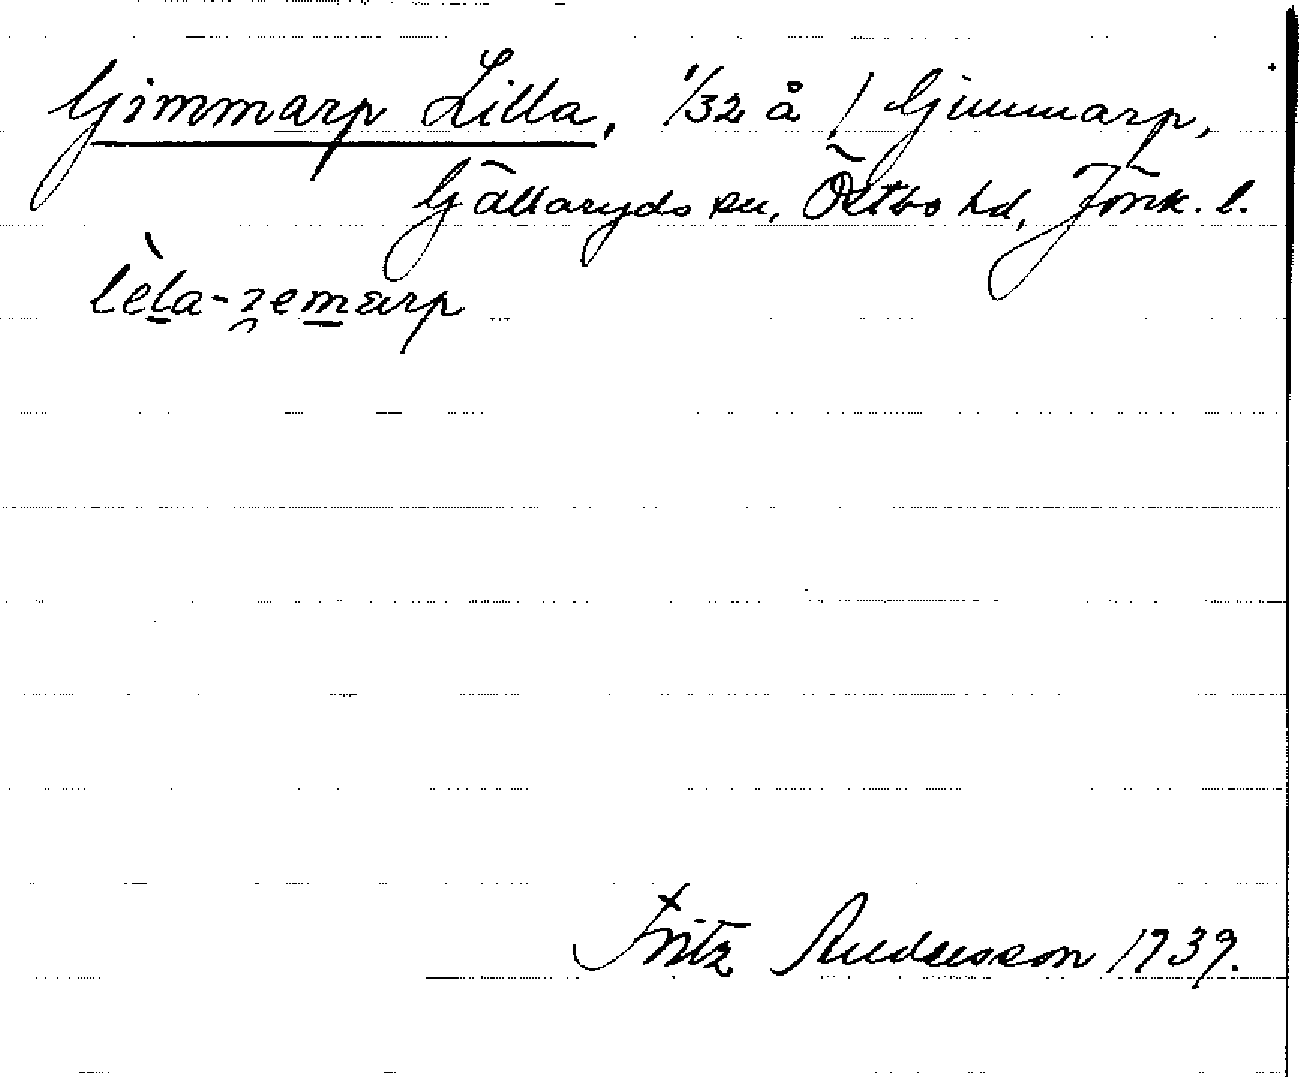 Gimmarp Lilla, 1/32 å 1 Gimmarp,
Gällaryds sn, Östbo hd, Jönk. l.
lèla-
Fritz Andersson 1939.